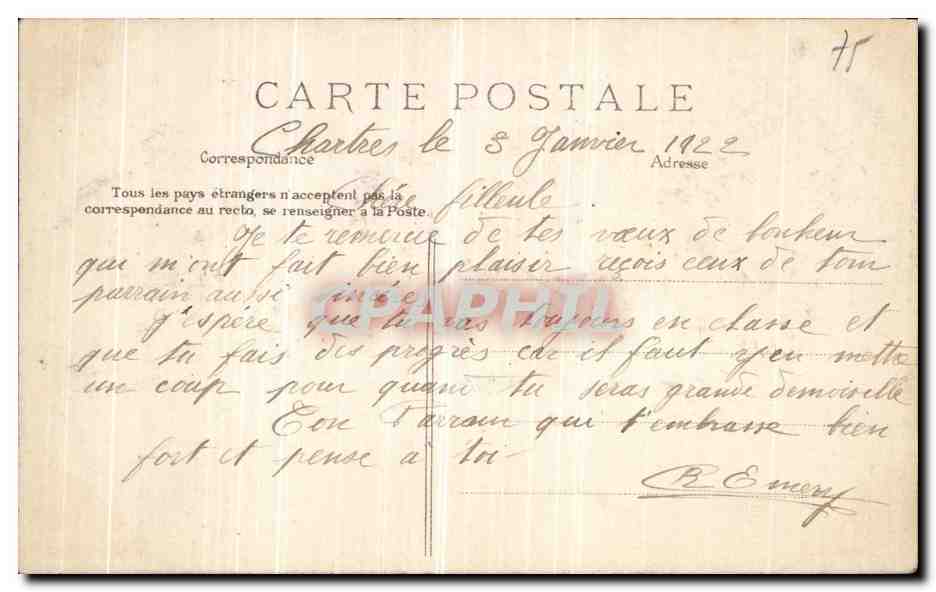 75
CARTE POSTALE
Chartres le 3 Janvier 1922
Correspondance
Adresse
Tous les pays étrangers n'acceptent pas la
correspondance au recto, se renseigner à la Poste.
Chère filleule.
Je te remercie de tes vœux de bonheur
qui m'ont fait bien plaisir reçois ceux de ton
parrain aussi sincère
CPAPHIL
J'espère que tu vas toujours en classe et
que tu fais des progrès car il faut y en mettre
un coup pour quand tu seras grande demoiselle
Ton Parrain qui t'embrasse bien
fort et pense à toi
R Emery